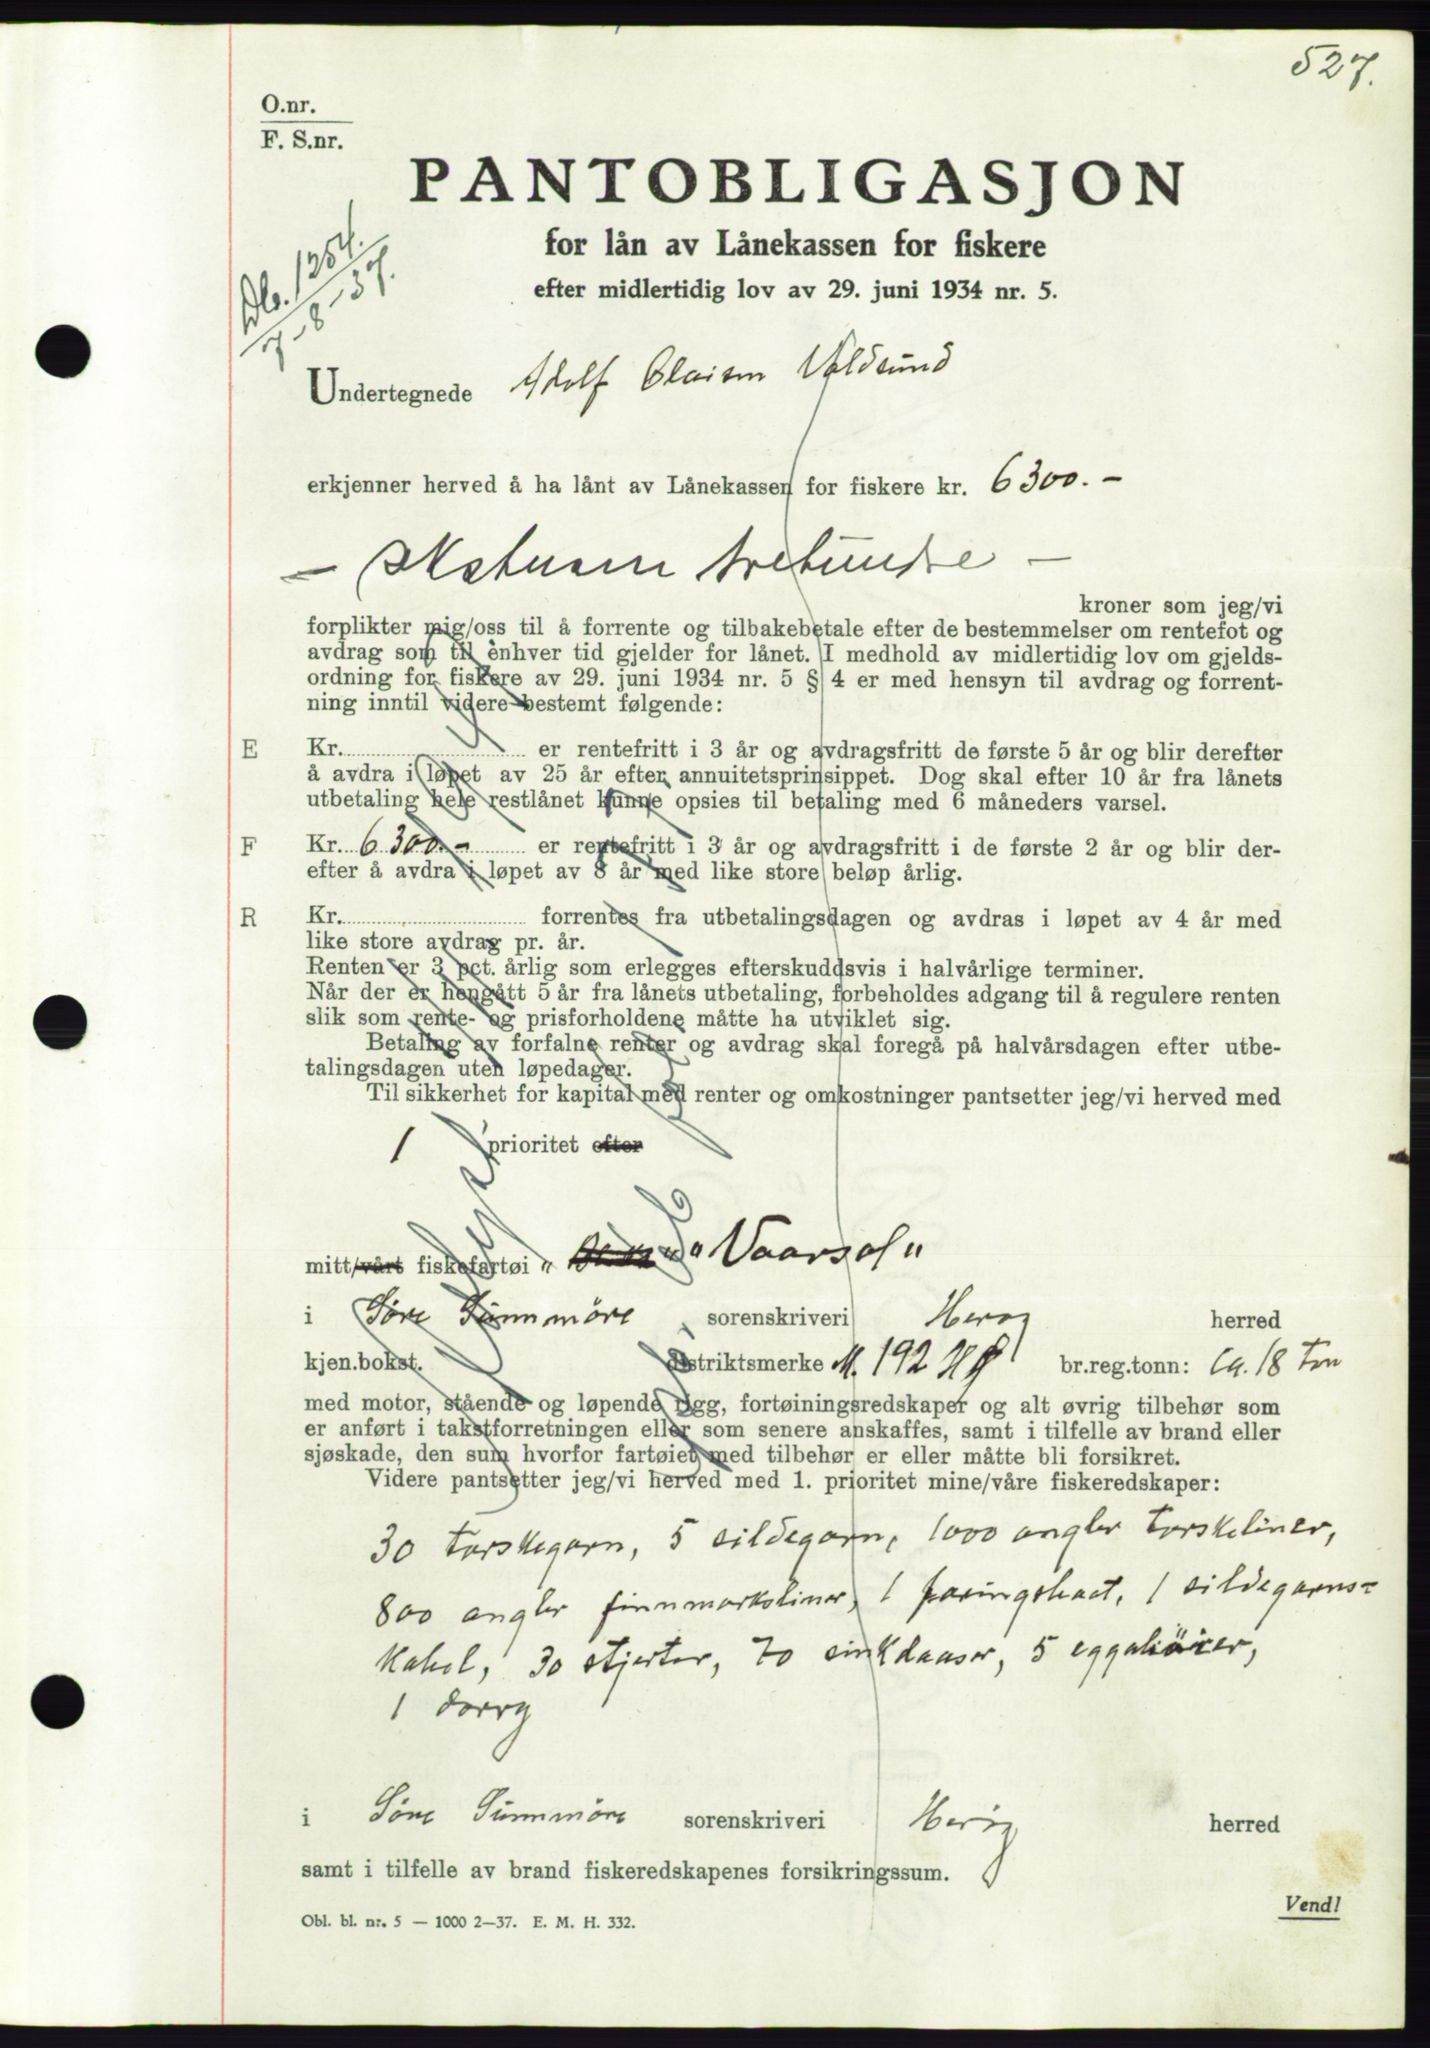 527.
O.nr.
F. S.nr.
PANTOBLIGASJON
for lån av Lånekassen for fiskere
efter midlertidig lov av 29. juni 1934 nr. 5.
Db. 1254.
7-8-37.
Undertegnede Adolf Olaisen Voldsund
erkjenner herved å ha lånt av Lånekassen for fiskere kr. 6300.-
- sekstusen trehundre -
kroner som jeg/vi
forplikter mig/oss til å forrente og tilbakebetale efter de bestemmelser om rentefot og
avdrag som til enhver tid gjelder for lånet. I medhold av midlertidig lov om gjelds-
ordning for fiskere av 29. juni 1934 nr. 5 § 4 er med hensyn til avdrag og forrent-
ning inntil videre bestemt følgende:
E Kr. er rentefritt i 3 år og avdragsfritt de første 5 år og blir derefter
å avdra i løpet av 25 år efter annuitetsprinsippet. Dog skal efter 10 år fra lånets
utbetaling hele restlånet kunne opsies til betaling med 6 måneders varsel.
F Kr. 6300.- er rentefritt i 3 år og avdragsfritt i de første 2 år og blir der-
efter å avdra i løpet av 8 år med like store beløp årlig.
R Kr. forrentes fra utbetalingsdagen og avdras i løpet av 4 år med
like store avdrag pr. år.
Renten er 3 pct. årlig som erlegges efterskuddsvis i halvårlige terminer.
Når der er hengått 5 år fra lånets utbetaling, forbeholdes adgang til å regulere renten
slik som rente- og prisforholdene måtte ha utviklet sig.
Betaling av forfalne renter og avdrag skal foregå på halvårsdagen efter utbe-
talingsdagen uten løpedager.
Til sikkerhet for kapital med renter og omkostninger pantsetter jeg/vi herved med
1 prioritet efter
mitt/vårt fiskefartøi " "Vaarsol"
i Søre Sunnmöre sorenskriveri Herøy herred
kjen.bokst. distriktsmerke M. 192 HØ br.reg.tonn: ca. 18 ton
med motor, stående og løpende rigg, fortøiningsredskaper og alt øvrig tilbehør som
er anført i takstforretningen eller som senere anskaffes, samt i tilfelle av brand eller
sjøskade, den sum hvorfor fartøiet med tilbehør er eller måtte bli forsikret.
Videre pantsetter jeg/vi herved med 1. prioritet mine/våre fiskeredskaper:
30 torskegarn, 5 sildegarn, 1000 angler torskeliner,
800 angler finnmarksliner, 1 færingsbaat, 1 sildegarns-
kabel, 30 stjerter, 70 sinkdaaser, 5 eggabøier,
1 dorry
i Søre Sunnmöre sorenskriveri Herøy herred
samt i tilfelle av brand fiskeredskapenes forsikringssum.
Obl. bl. nr. 5 — 1000 2—37. E. M. H. 332.
Vend!